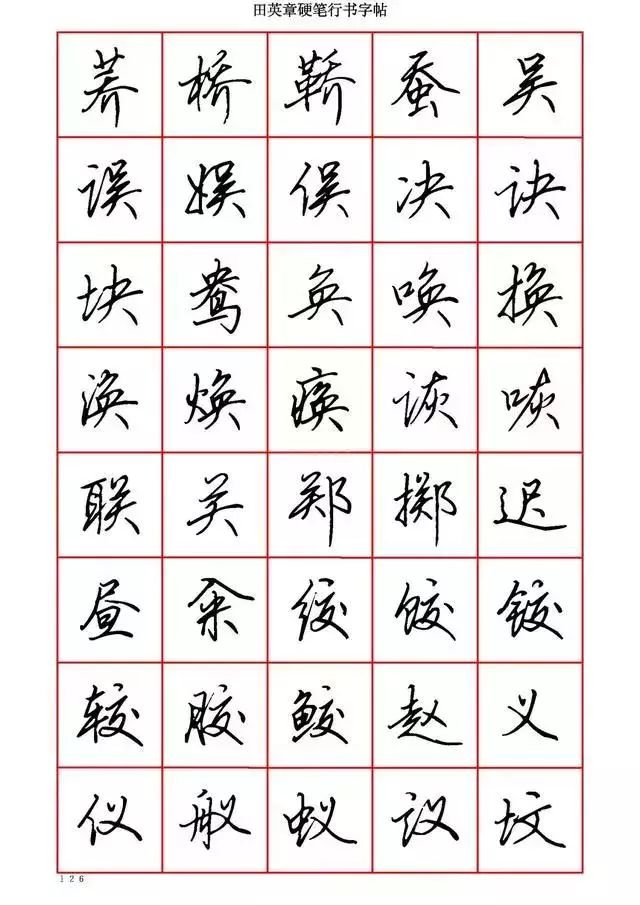 田英章硬笔行书字帖
荞桥鞒蚕吴
误娱俣决诀
块鸯奂唤换
涣焕痪诙咴
联关郑掷迟
昼籴绞饺铰
较胶鲛赵义
仪舣蚁议坟
126